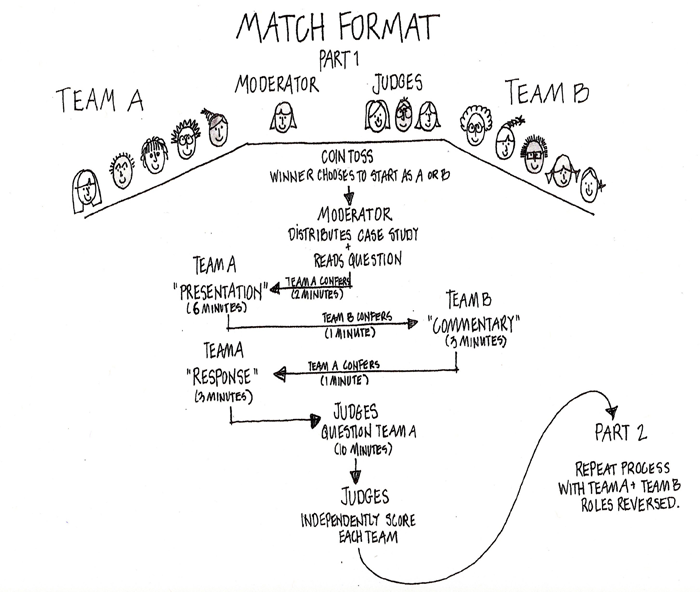 MATCH FORMAT
PART 1
TEAM A
MODERATOR
JUDGES
TEAM B
COIN TOSS
WINNER CHOOSES TO START AS A OR B
MODERATOR
DISTRIBUTES CASE STUDY
+
READS QUESTION
TEAM A CONFERS
(2 MINUTES)
TEAM A
"PRESENTATION"
(6 MINUTES)
TEAM B CONFERS
(1 MINUTE)
TEAM B
"COMMENTARY"
(3 MINUTES)
TEAM A CONFERS
(1 MINUTE)
TEAM A
"RESPONSE"
(3 MINUTES)
JUDGES
QUESTION TEAM A
(10 MINUTES)
JUDGES
INDEPENDENTLY SCORE
EACH TEAM
PART 2
REPEAT PROCESS
WITH TEAM A + TEAM B
ROLES REVERSED.